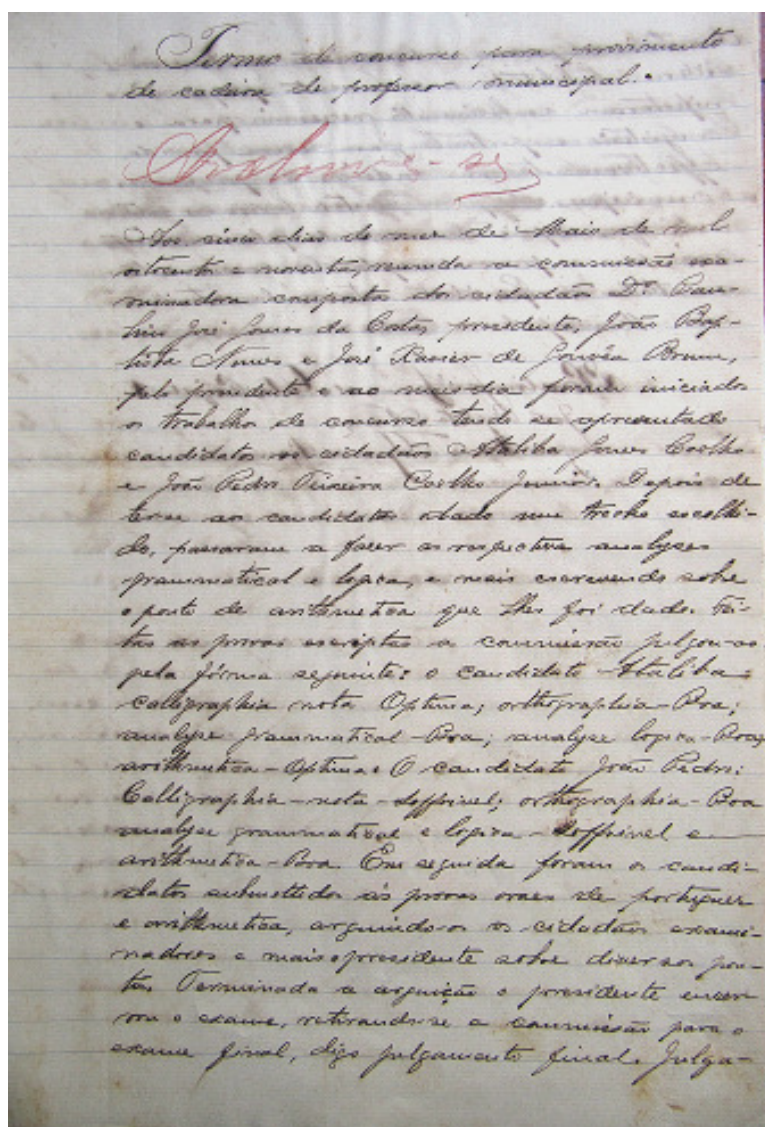 Termo de concurso para provimento
de cadeira de professor municipal.
Aos cinco dias do mez de Maio de mil
oitocentos e noventa, reunida a commissão exa-
minadora composta dos cidadãos Dr. Pau-
lino José Gomes da Costa, presidente, João Bap-
tista Nunes e José Xavier de Gouvêa Brum,
pelo presidente e ao meio dia foram iniciados
os trabalhos de concurso tendo se apresentado
candidatos os cidadãos Ataliba Gomes Coelho
e João Pedro Teixeira Coelho Junior. Depois de
ter-se aos candidatos dado um trecho escolhi-
do, passaram a fazer as respectivas analyses
grammatical e logica, e mais escrevendo sobre
o ponto de arithmetica que lhes foi dado. Fei-
tas as provas escriptas a commissão julgou-as
pela fórma seguinte: o candidato Ataliba:
calligraphia nota Optima; orthographia - Boa;
analyse grammatical - Boa; analyse logica - Boa;
arithmetica - Optima. O candidato João Pedro:
Calligraphia - nota - Soffrivel; orthographia - Boa
analyse grammatical e logica - Soffrivel e
arithmetica - Boa. Em seguida foram os candi-
datos submettidos ás provas oraes de portuguez
e arithmetica, arguindo-os os cidadãos exami-
nadores e mais o presidente sobre diversos pon-
tos. Terminada a arguição o presidente encer
rou o exame, retirando-se a commissão para o
exame final, digo julgamento final. Julga-